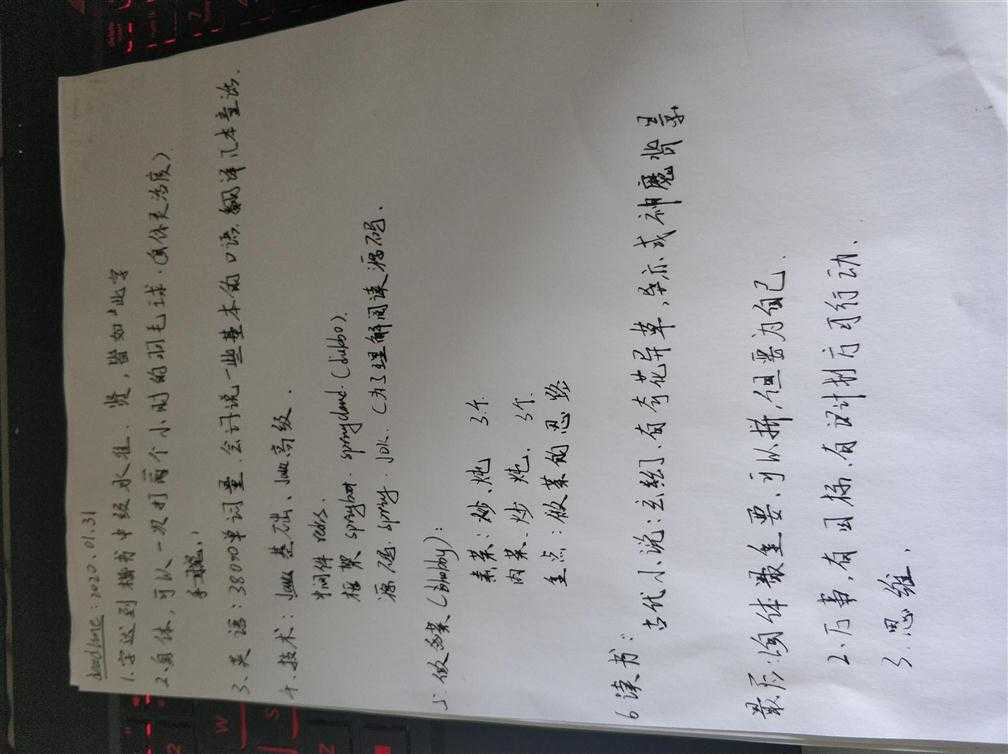 deadline: 2020.01.31
1.字达到楷书中级水准.竖,皆如此字
2、身体,可以一次打两个小时的羽毛球.(身体灵活度)
3、英语:38000单词量.会讨说一些基本的口语.翻译几本童话.
4、技术:Java基础、Java高级.
中间件 redis.
框架 springboot. springcloud.(dubbo).
源码. spring. JDK. (为了理解阅读源码.
5、做菜(hobby):
素菜:炒、炖 3个
肉菜、炒 炖. 3个.
重点:做菜的思路
6 读书:
古代小说:玄幻.有奇花异草,亦或神魔背景
最后:1.身体最重要、可以拼,但要为自己.
2、万事,有目标.有计划方可行动.
3.思维.
W
S